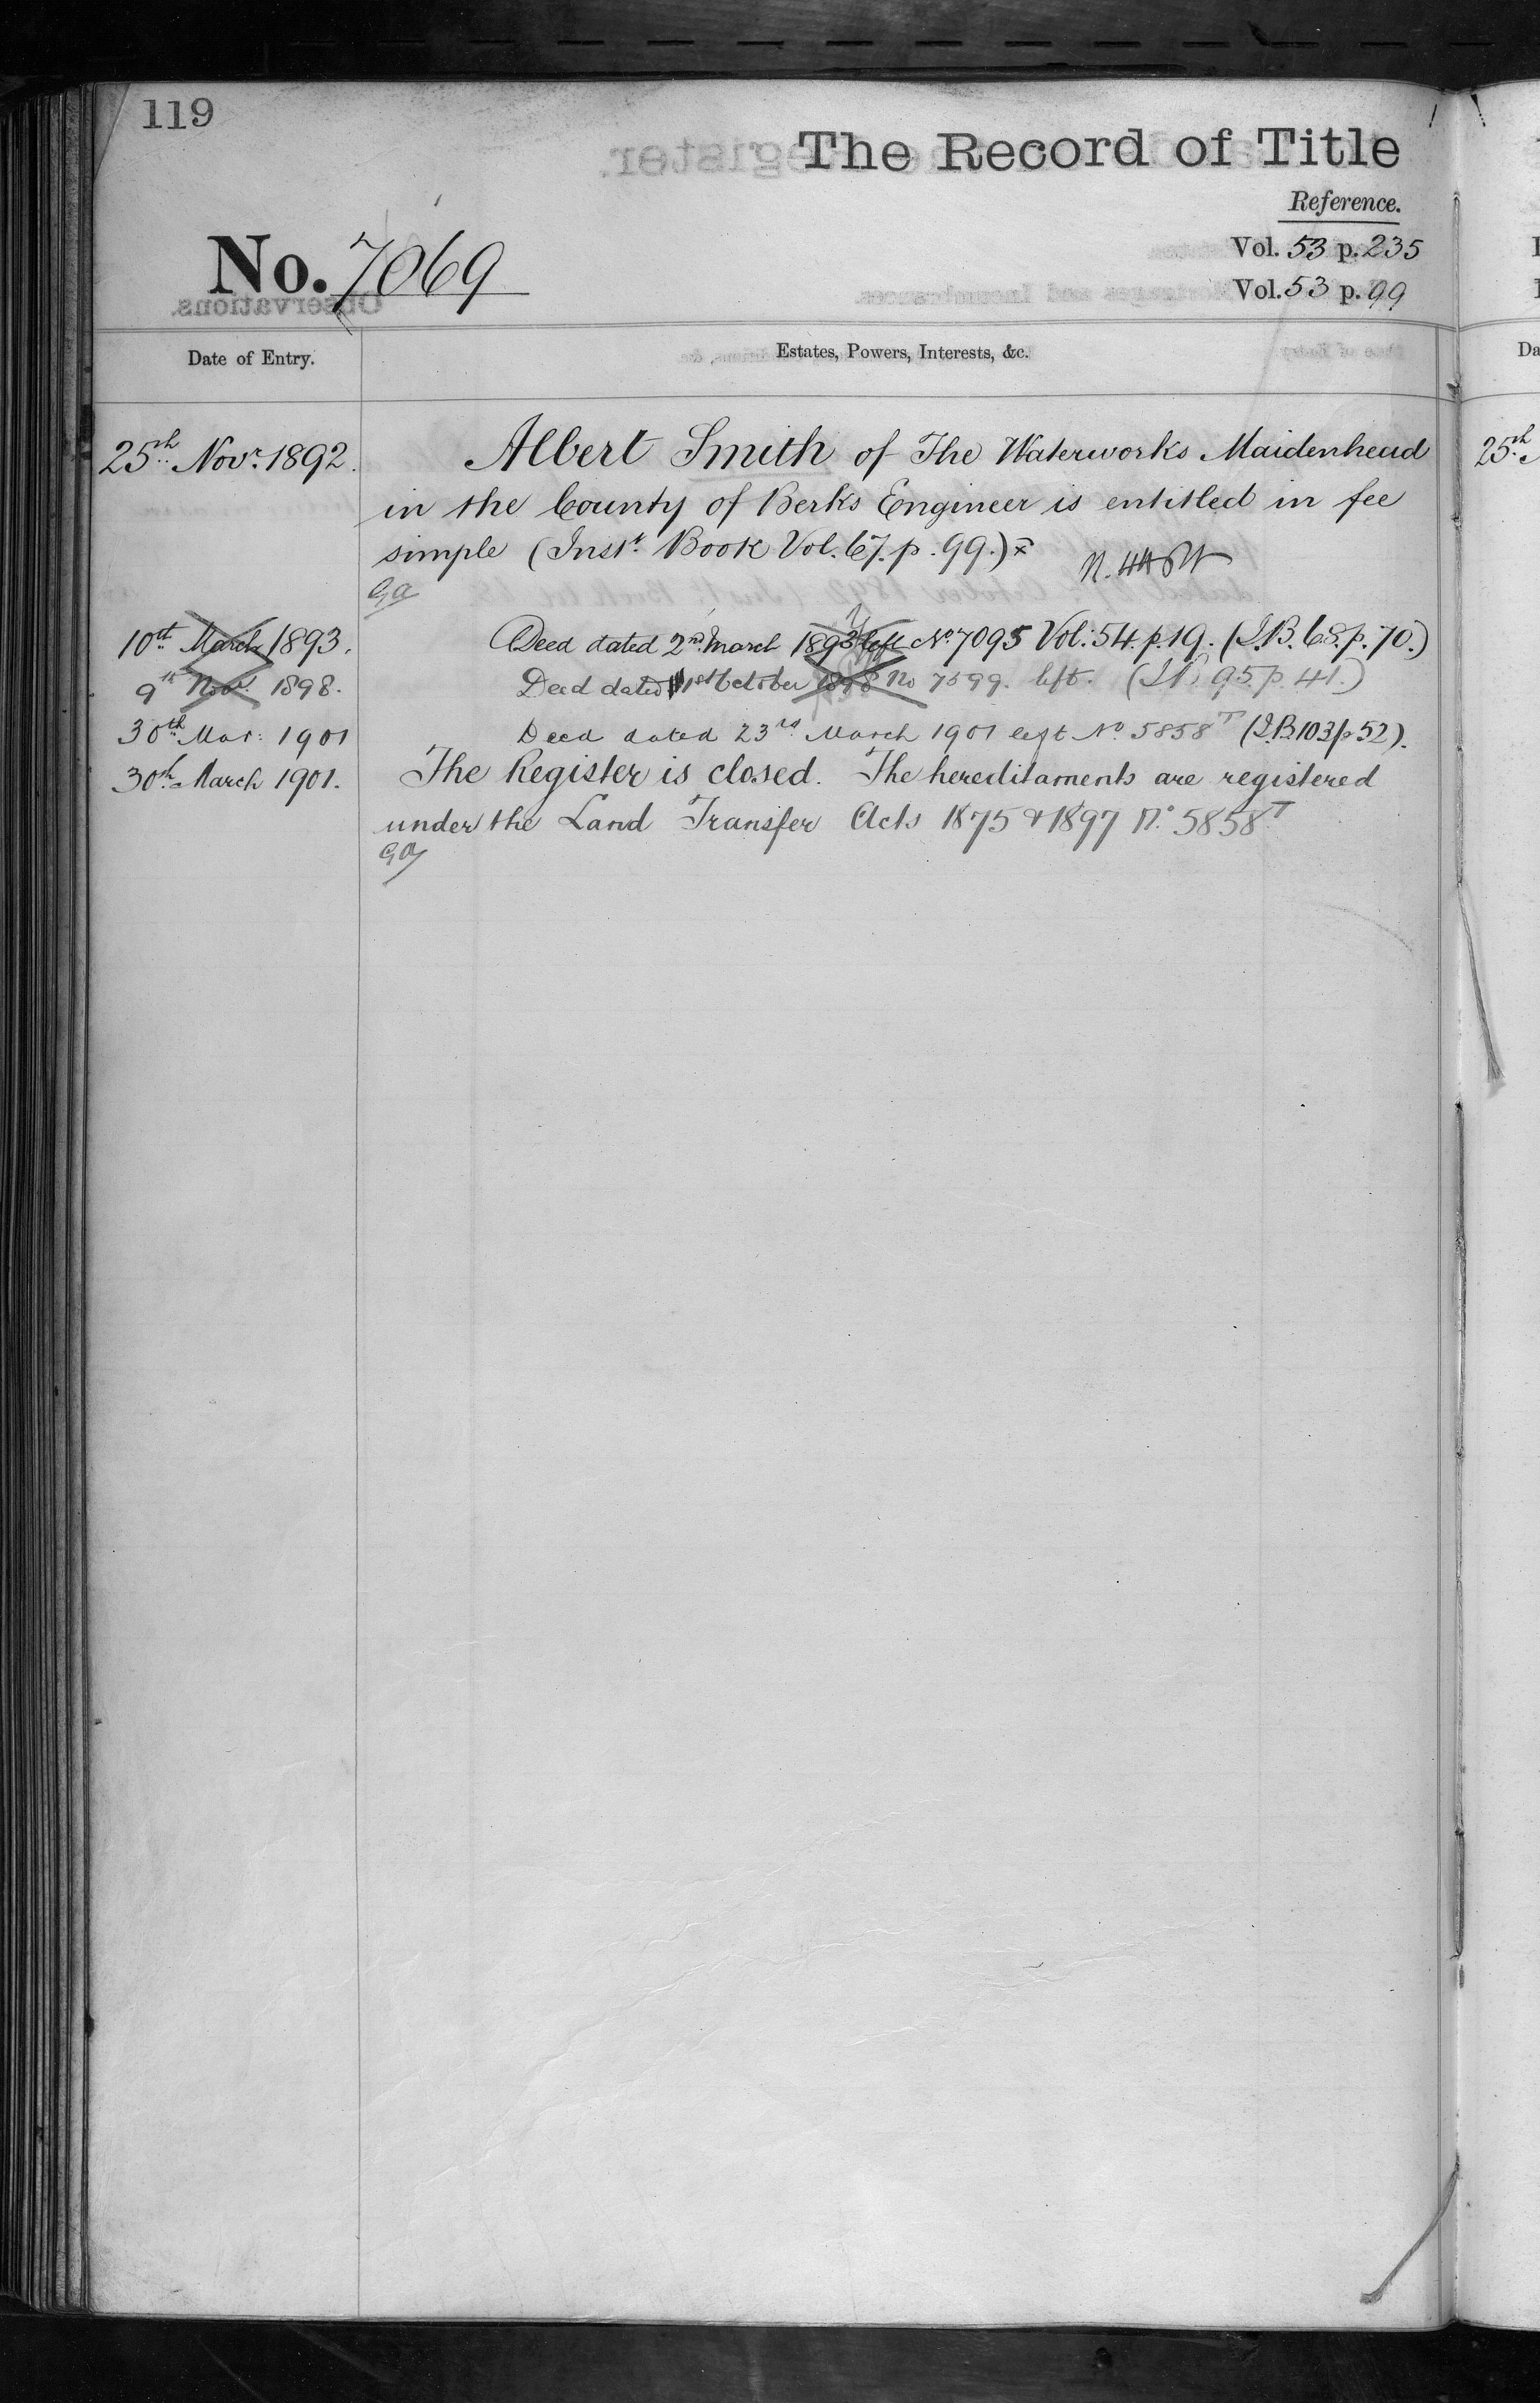 119
The Record of Title
Reference.
No. 7069
Vol. 53 p. 235
Vol. 53 p. 99
Date of Entry.
Estates, Powers, Interests, &c.
25th Novr. 1892.
Albert Smith of The Waterworks Maidenhead
in the County of Berks Engineer is entitled in fee
simple (Instt. Book Vol. 67. p. 99.)
Ga
10th March 1893.
Deed dated 2nd March 1893 left No. 7095 Vol. 54. p. 19. (I.B. 68. p. 70.)
9th Novr. 1898.
Deed dated 1st October 1898 No 7599. left. (I.B. 95. p. 41.)
30th Mar: 1901
Deed dated 23rd March 1901 left No. 5858T (I.B. 103 p 52).
30th March 1901.
The Register is closed. The hereditaments are registered
under the Land Transfer Acts 1875 & 1897 No. 5858T
Ga
Da
25th